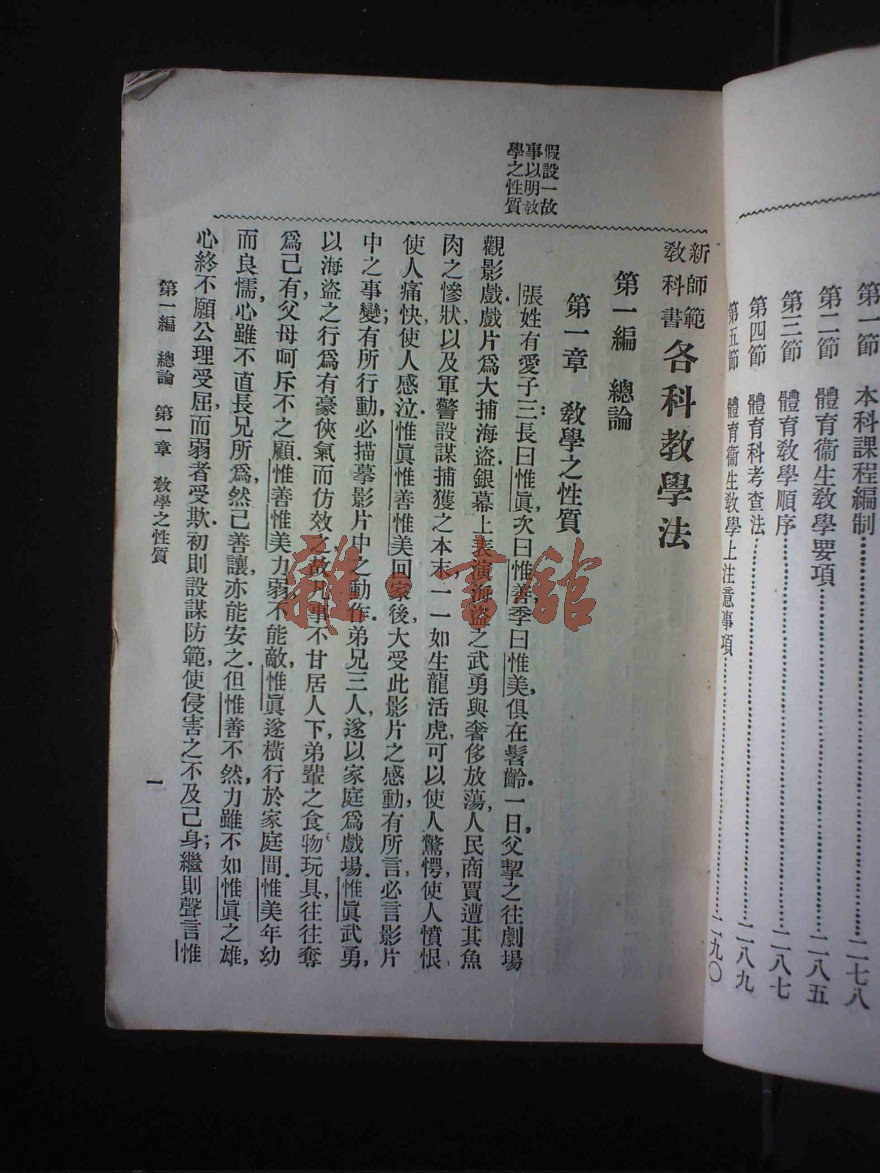 第一節　本科課程編制……………二七八
第二節　體育衞生教學要項……………二八五
第三節　體育教學順序……………二八七
第四節　體育科考查法……………二八九
第五節　體育衞生教學上注意事項……………二九〇
假設一故
事以明敎
學之性質
新師範
敎科書
各科敎學法
第一編　總論
第一章　敎學之性質
張姓有愛子三：長曰惟眞，次曰惟善，季曰惟美，俱在髫齡．一日，父挈之往劇場
觀影戲．戲片爲大捕海盜．銀幕上表演海盜之武勇與奢侈放蕩，人民商賈遭其魚
肉之慘狀以及軍警設謀捕獲之本末，一一如生龍活虎，可以使人驚愕，使人憤恨，
使人痛快，使人感泣．惟眞惟善惟美回家後，大受此影片之感動，有所言必言影片
中之事變；有所行動，必描摹影片中之動作．弟兄三人，遂以家庭爲戲場．惟眞武勇，
以海盜之行爲有豪俠氣而仿效之，故凡事不甘居人下，弟輩之食物玩具，往往奪
爲己有，父母呵斥不之顧．惟善惟美力弱不能敵，惟眞遂橫行於家庭間．惟美年幼
而良懦，心雖不直長兄所爲，然己善讓，亦能安之．但惟善不然，力雖不如惟眞之雄，
心終不願公理受屈，而弱者受欺．初則設謀防範，使侵害之不及己身；繼則聲言惟
第一編　總論　第一章　敎學之性質
一
雜·書館